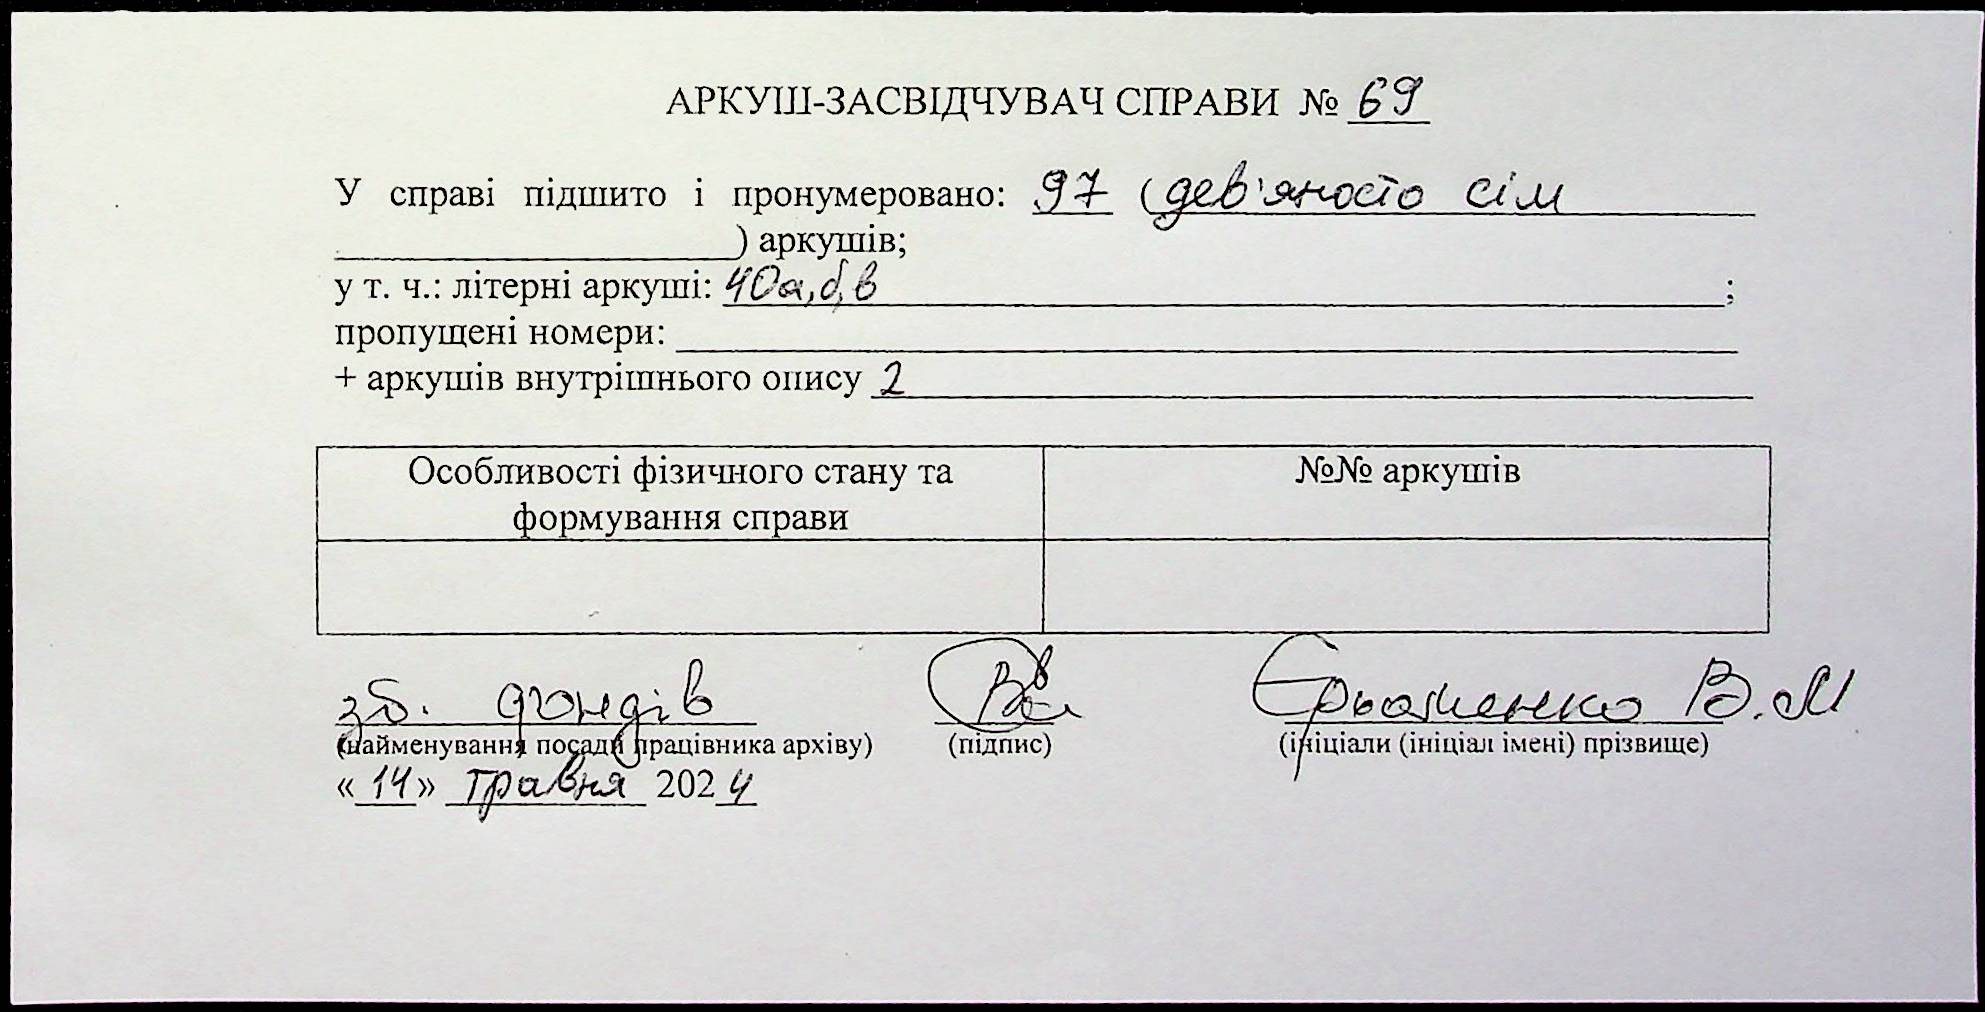 АРКУШ-ЗАСВІДЧУВАЧ СПРАВИ № 69
У справі підшито і пронумеровано: 97 (дев'яносто сім
) аркушів;
у т. ч.: літерні аркуші: 40а,б,в ;
пропущені номери:
+ аркушів внутрішнього опису 2
Особливості фізичного стану та
формування справи
№№ аркушів
зб. фондів В. М
(найменування посади працівника архіву) (підпис) (ініціали (ініціал імені) прізвище)
«14» травня 2024